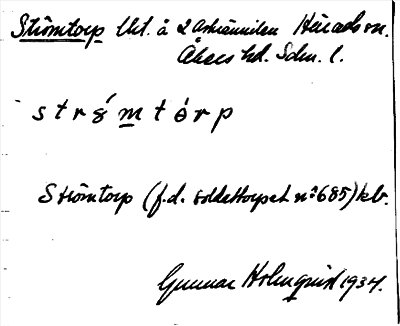 Strömtorp lht. å 2 Härads sn.
Åkers hd. Sdm. l.
strǿmtórp
Strömtorp (f.d. soldattorpet nº 685) kb.
Gunnar Holmquist 1934.